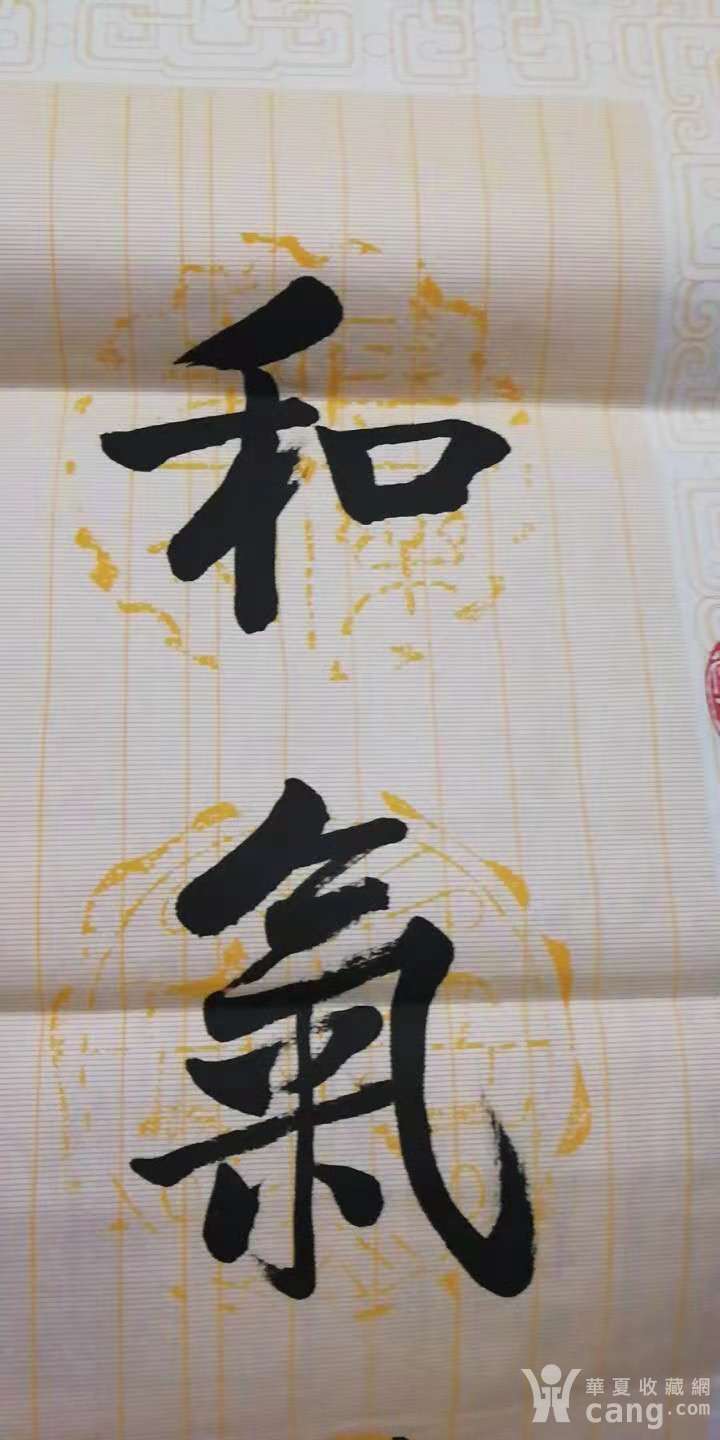 和
氣
華夏收藏網
cang.com